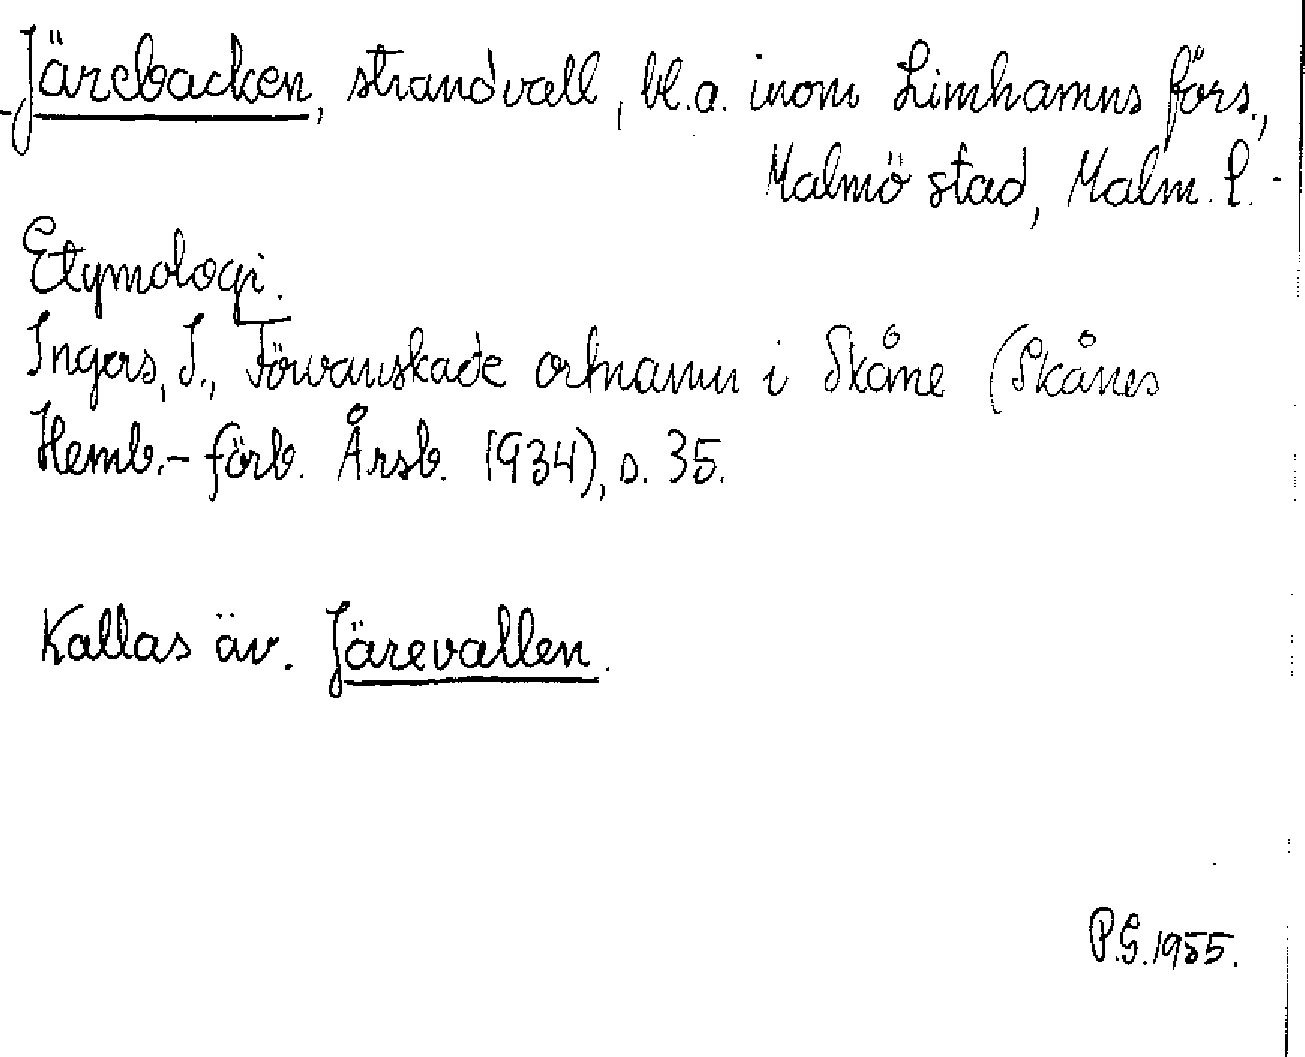 Järebacken, strandvall, bl.a. inom Limhamns förs.,
Malmö stad, Malm. l. -
Etymologi.
Ingers, I., Försvenskade ortnamn i Skåne (Skånes
Hemb.-förb. Årsb. 1934), s. 35.
Kallas äv. Järevallen.
P.G. 1955.